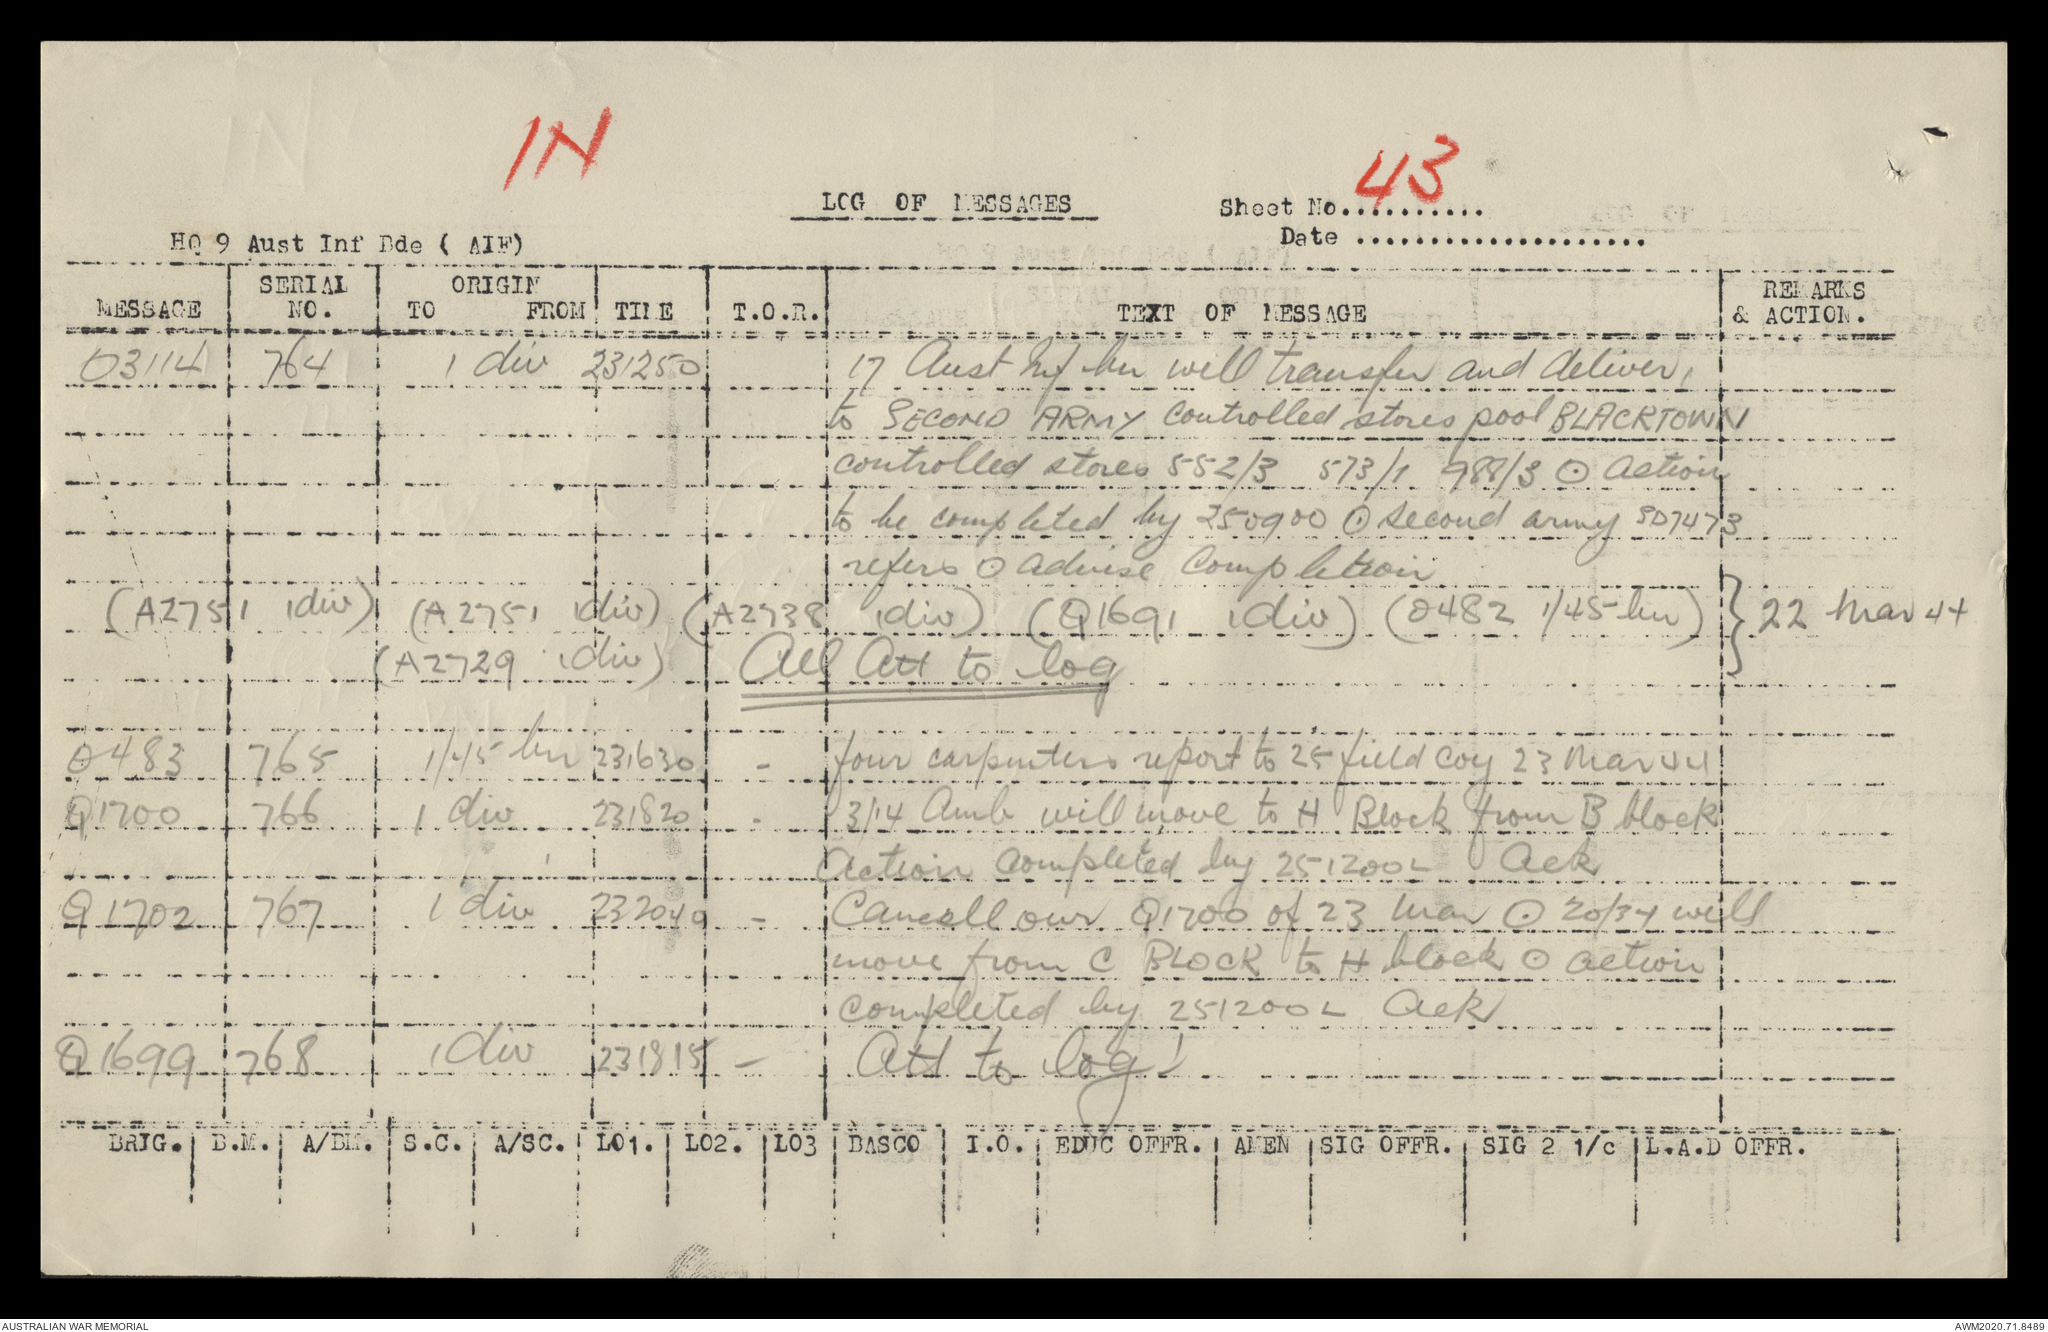 IN
43
LOG OF MESSAGES
Sheet No...........
HQ 9 Aust Inf Bde ( AIF)
Date .....................
MESSAGE SERIAL NO. ORIGIN TO FROM TIME T.O.R. TEXT OF MESSAGE REMARKS & ACTION.
O3114 764 1 div 231250 17 Aust Inf bn will transfer and deliver,
to SECOND ARMY controlled stores pool BLACKTOWN
controlled stores 552/3 573/1 988/3 ⊙ action
to be completed by 250900 ⊙ second army SD7473
refers ⊙ advise completion
(A2751 1 div) (A2751 1 div) (A2738 1 div) (Q1691 1 div) (O482 1/45 bn) } 22 Mar 44
(A2729 1 div) All Att to log
O483 765 1/45 bn 231630 - four carpenters report to 25 field coy 23 Mar 44
Q1700 766 1 div 231820 - 3/14 Amb will move to H Block from B block
action completed by 251200L Ack
Q1702 767 1 div 232040 - Cancell our Q1700 of 23 Mar ⊙ 20/34 will
move from C BLOCK to H block ⊙ action
completed by 251200L Ack
Q1699 768 1 div 231815 - Att to log!
BRIG. B.M. A/BM. S.C. A/SC. LO1. LO2. LO3 BASCO I.O. EDUC OFFR. AMEN SIG OFFR. SIG 2 1/c L.A.D OFFR.
AUSTRALIAN WAR MEMORIAL
AWM2020.71.8489